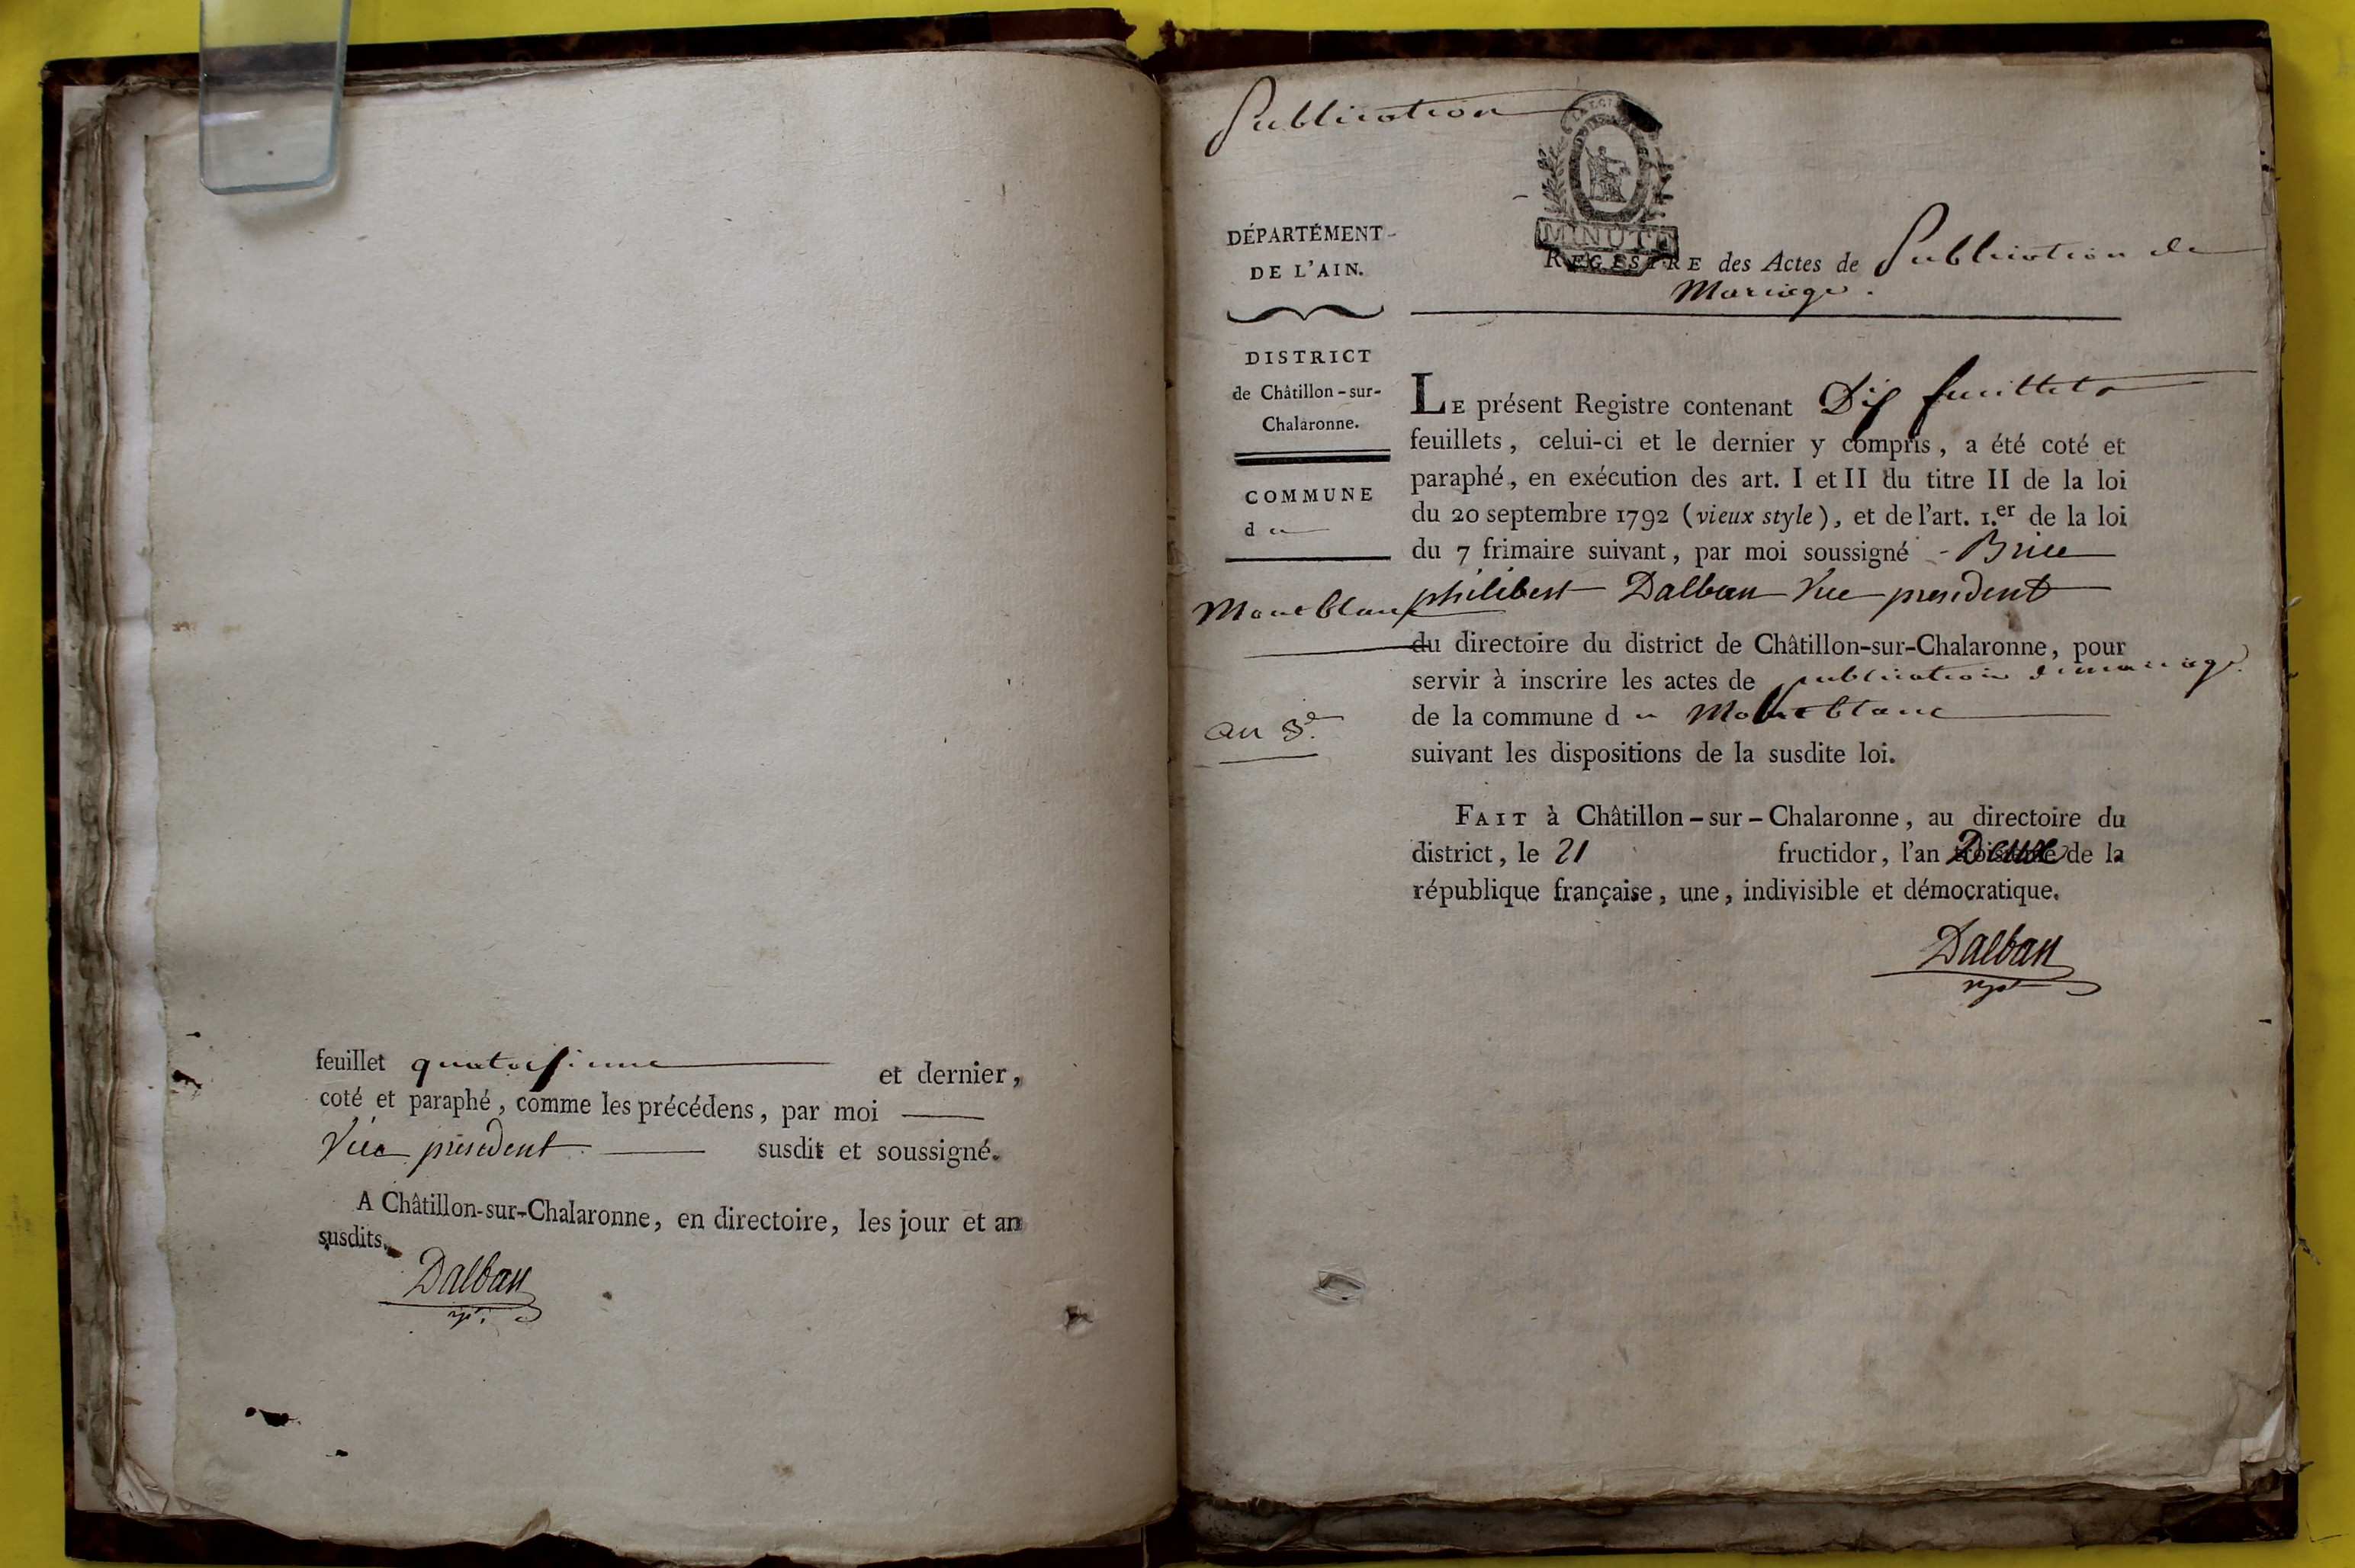 feuillet quatorsieme et dernier,
coté et paraphé, comme les précédens, par moi
Vice président susdit et soussigné.
A Châtillon-sur-Chalaronne, en directoire, les jour et an
susdits.
Dalban
Publication
MINUTE
DÉPARTÉMENT
DE L'AIN.
REGESTRE des Actes de Publication de
Mariage.
DISTRICT
de Châtillon-sur-
Chalaronne.
COMMUNE
de
Montblanc
an 3e
LE présent Registre contenant Dix feuillets
feuillets, celui-ci et le dernier y compris, a été coté et
paraphé, en exécution des art. I et II du titre II de la loi
du 20 septembre 1792 (vieux style), et de l'art. 1.er de la loi
du 7 frimaire suivant, par moi soussigné - Brice
philibert Dalban Vice president
du directoire du district de Châtillon-sur-Chalaronne, pour
servir à inscrire les actes de publication de mariage
de la commune de Montblanc
suivant les dispositions de la susdite loi.
FAIT à Châtillon-sur-Chalaronne, au directoire du
district, le 21 fructidor, l'an Deux de la
république française, une, indivisible et démocratique.
Dalban